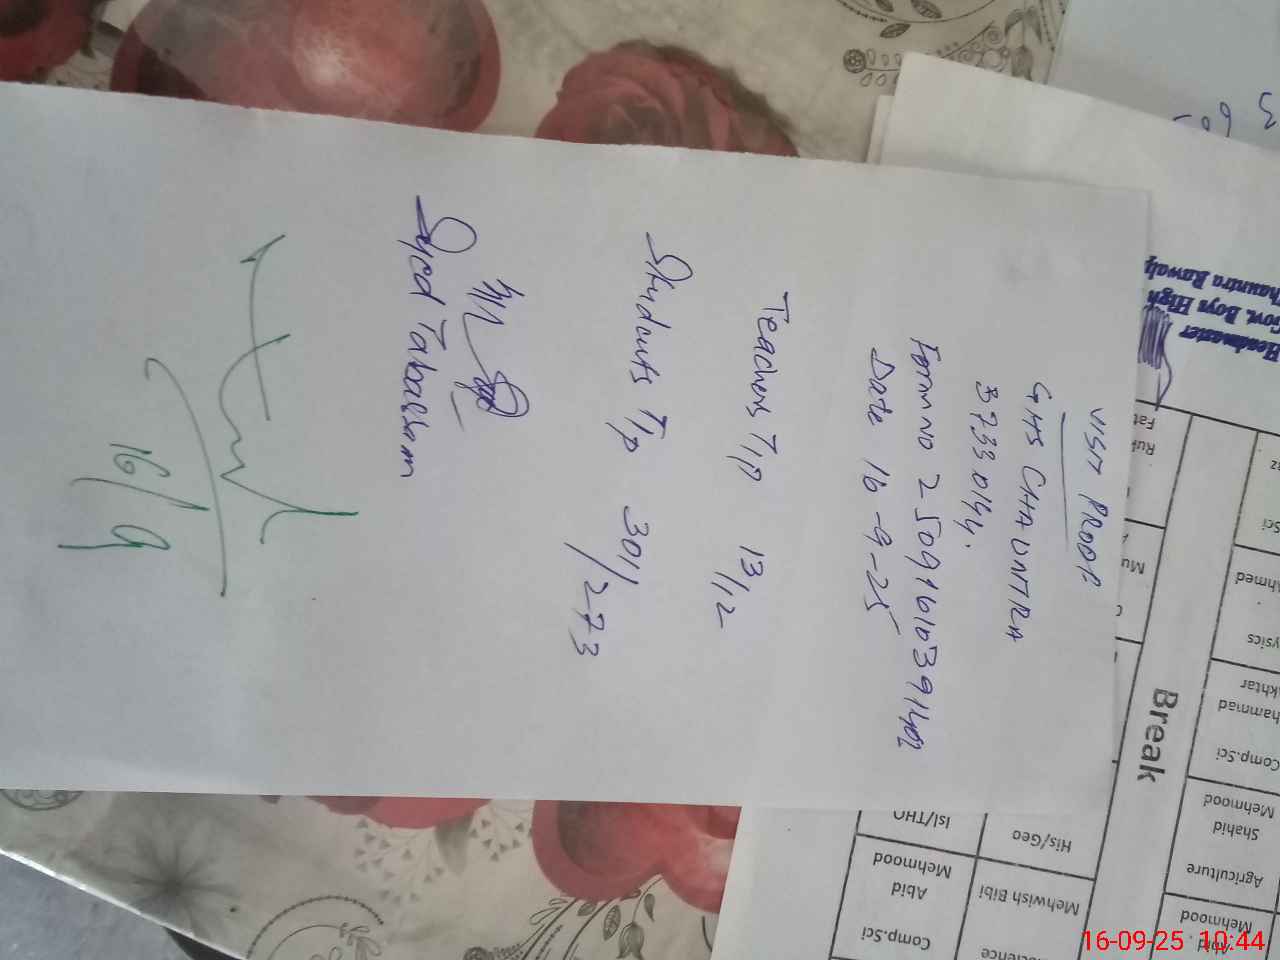 VISIT PROOF
GHS CHAUNTRA
3733 0144.
Form no 25091610391402
Date 16-9-25
Teachers T/P 13/12
Students T/p 301/273
Syed Tabassam
16/9
Headmaster
Govt. Boys High
Chauntra Rawalp
Break
Comp.Sci
Shahid
Mehmood
Agriculture
Mehmood
His/Geo
Isl/THQ
Mehwish Bibi
Abid
Mehmood
Comp.Sci
16-09-25 10:44